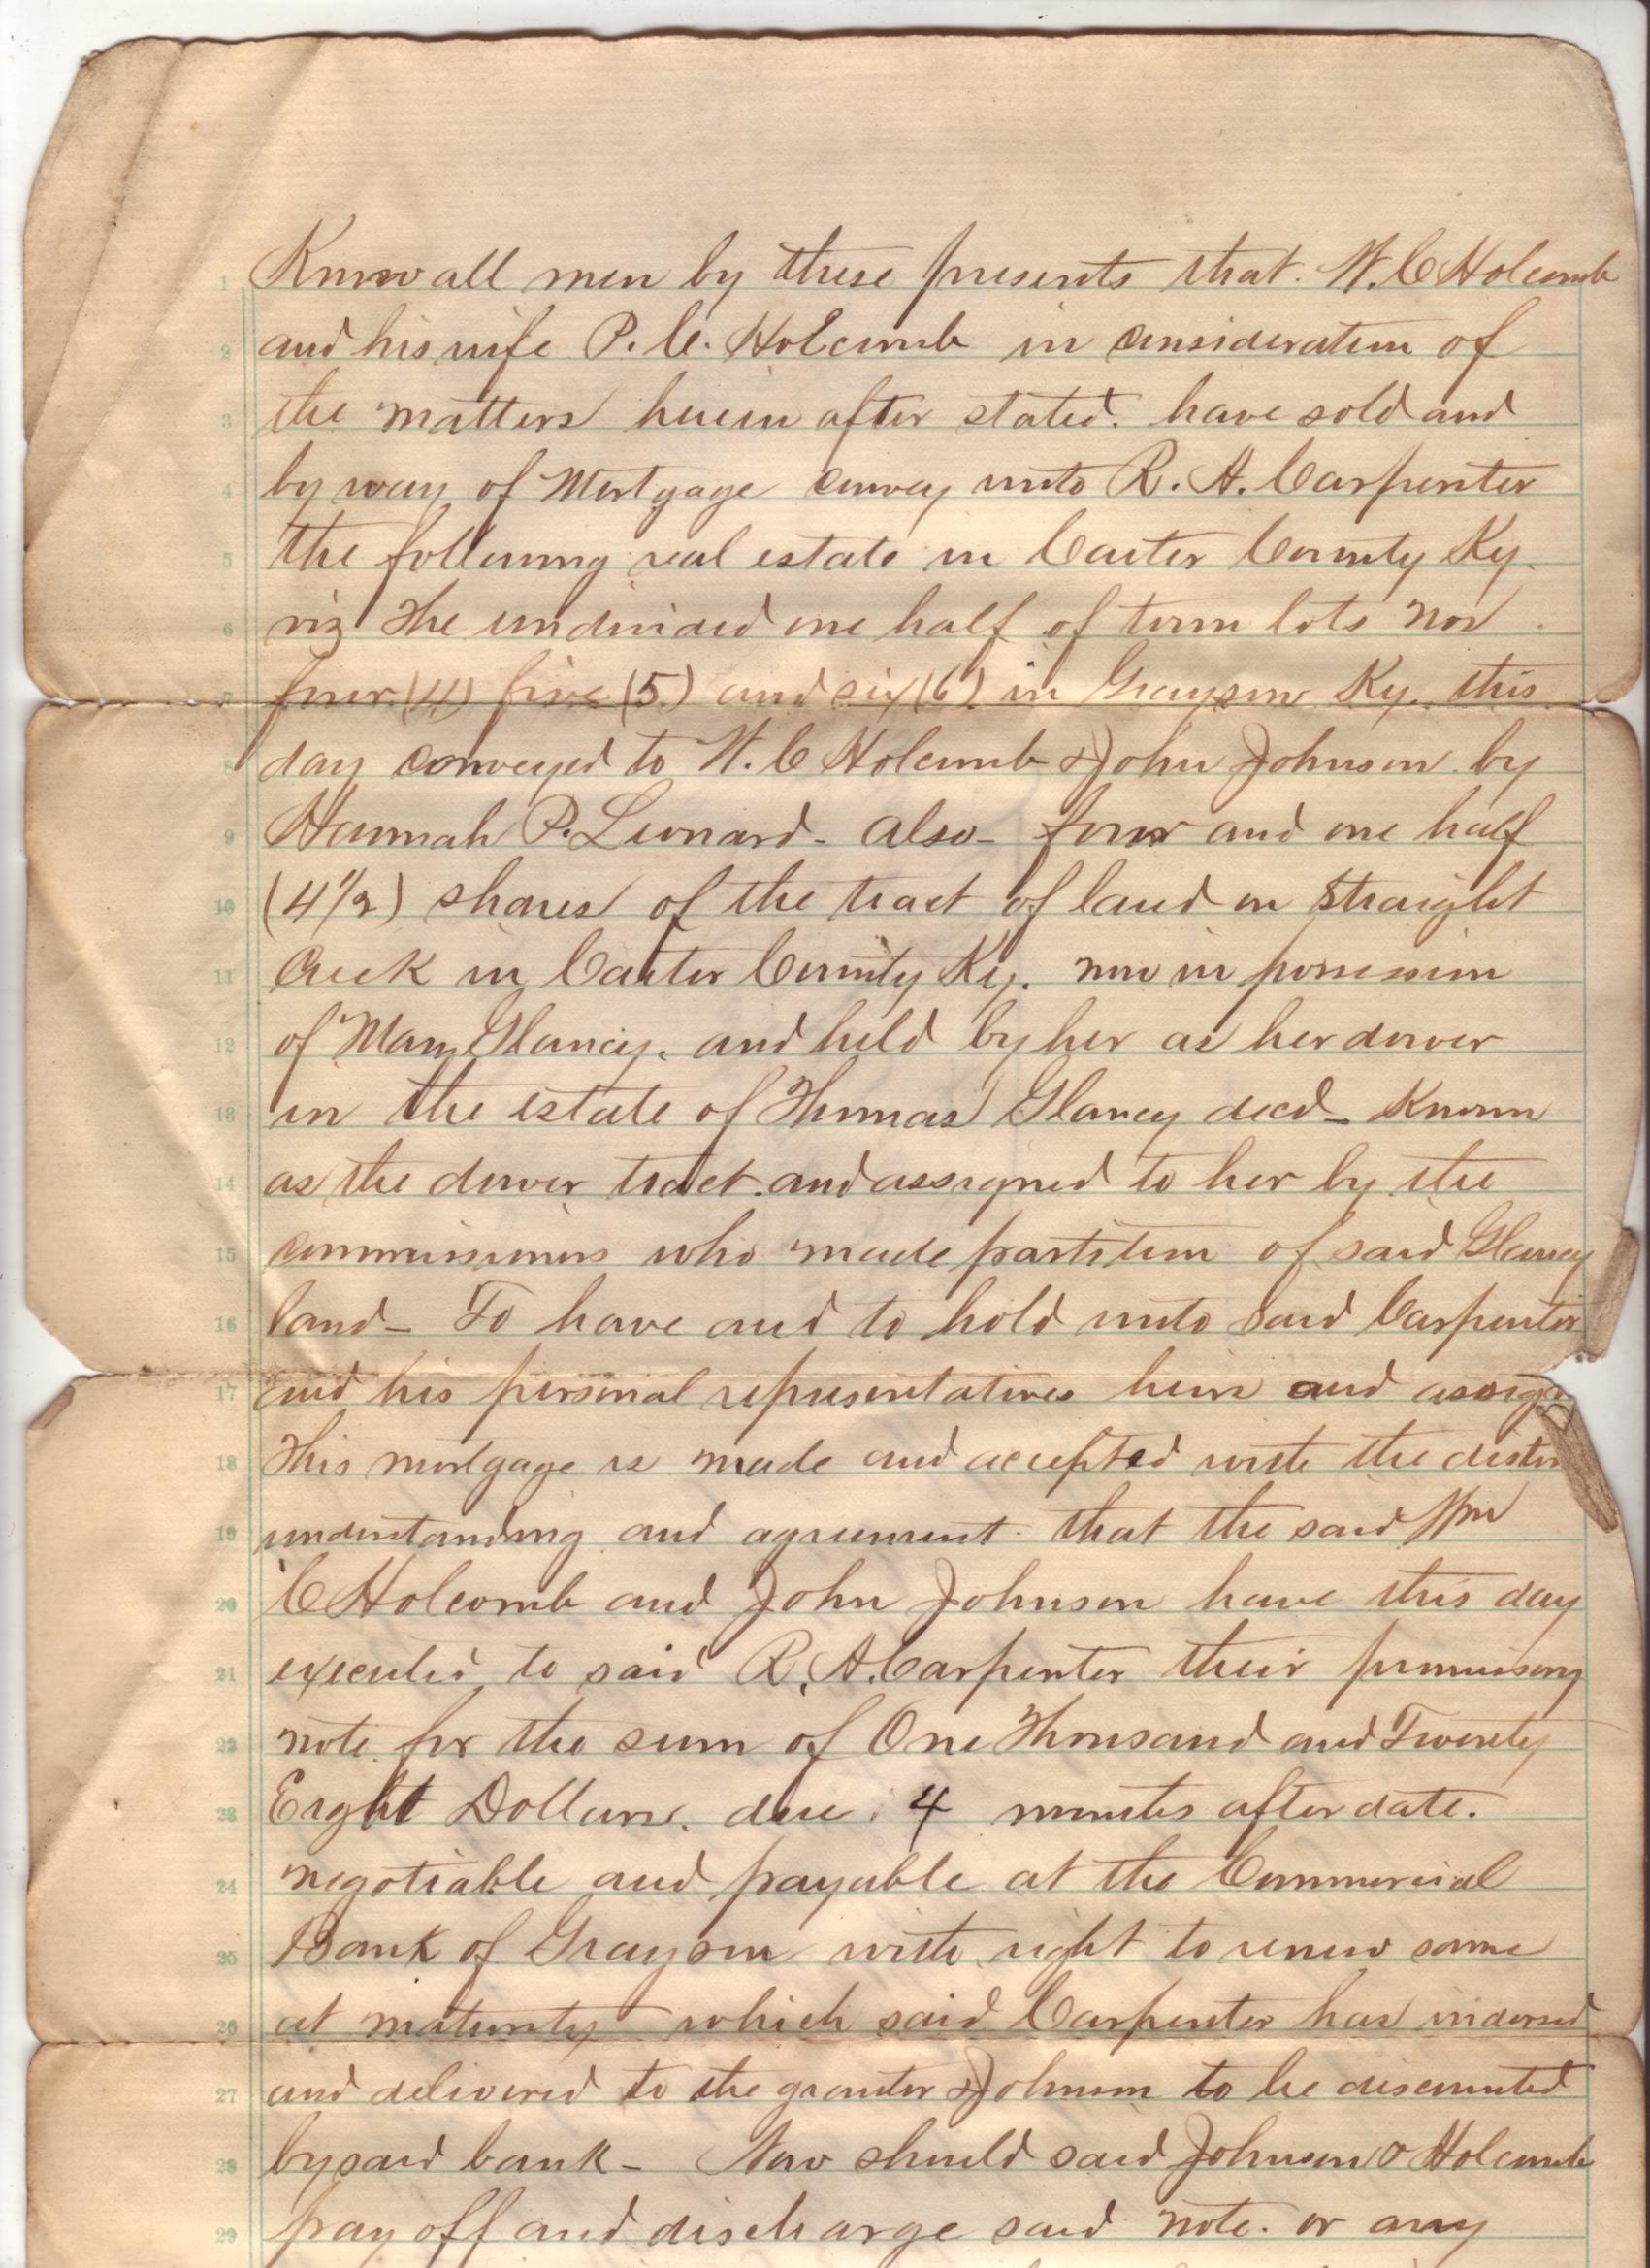 1 Know all men by these presents that. W. C Holcomb
2 and his wife P. C. Holcomb in consideration of
3 the matters herein after stated. have sold and
4 by way of Mortgage convey unto R. A. Carpenter
5 the following real estate in Carter County Ky.
6 viz The undivided one half of town lots Nos
7 four (4) five (5) and six (6) in Grayson Ky. this
8 day conveyed to W. C Holcomb & John Johnson by
9 Hannah P. Leonard - also - four and one half
10 (4 1/2) shares of the tract of land on Straight
11 Creek in Carter County Ky. now in possession
12 of Mary Glancy. and held by her as her dower
13 in the estate of Thomas Glancy decd - Known
14 as the dower tract. and assigned to her by the
15 commissioners who made partition of said Glancy
16 land - To have and to hold unto said Carpenter
17 and his personal representatives heirs and assigns
18 This mortgage is made and accepted with the distin
19 understanding and agreement. that the said Wm
20 C Holcomb and John Johnson have this day
21 executed to said R. A. Carpenter their promissory
22 note for the sum of One Thousand and Twenty
23 Eight Dollars. due 4 months after date.
24 negotiable and payable at the Commercial
25 Bank of Grayson with right to renew same
26 at maturity which said Carpenter has indorsed
27 and delivered to the grantor & Johnson to be discounted
28 by said bank - Now should said Johnson & Holcomb
29 pay off and discharge said note. or any